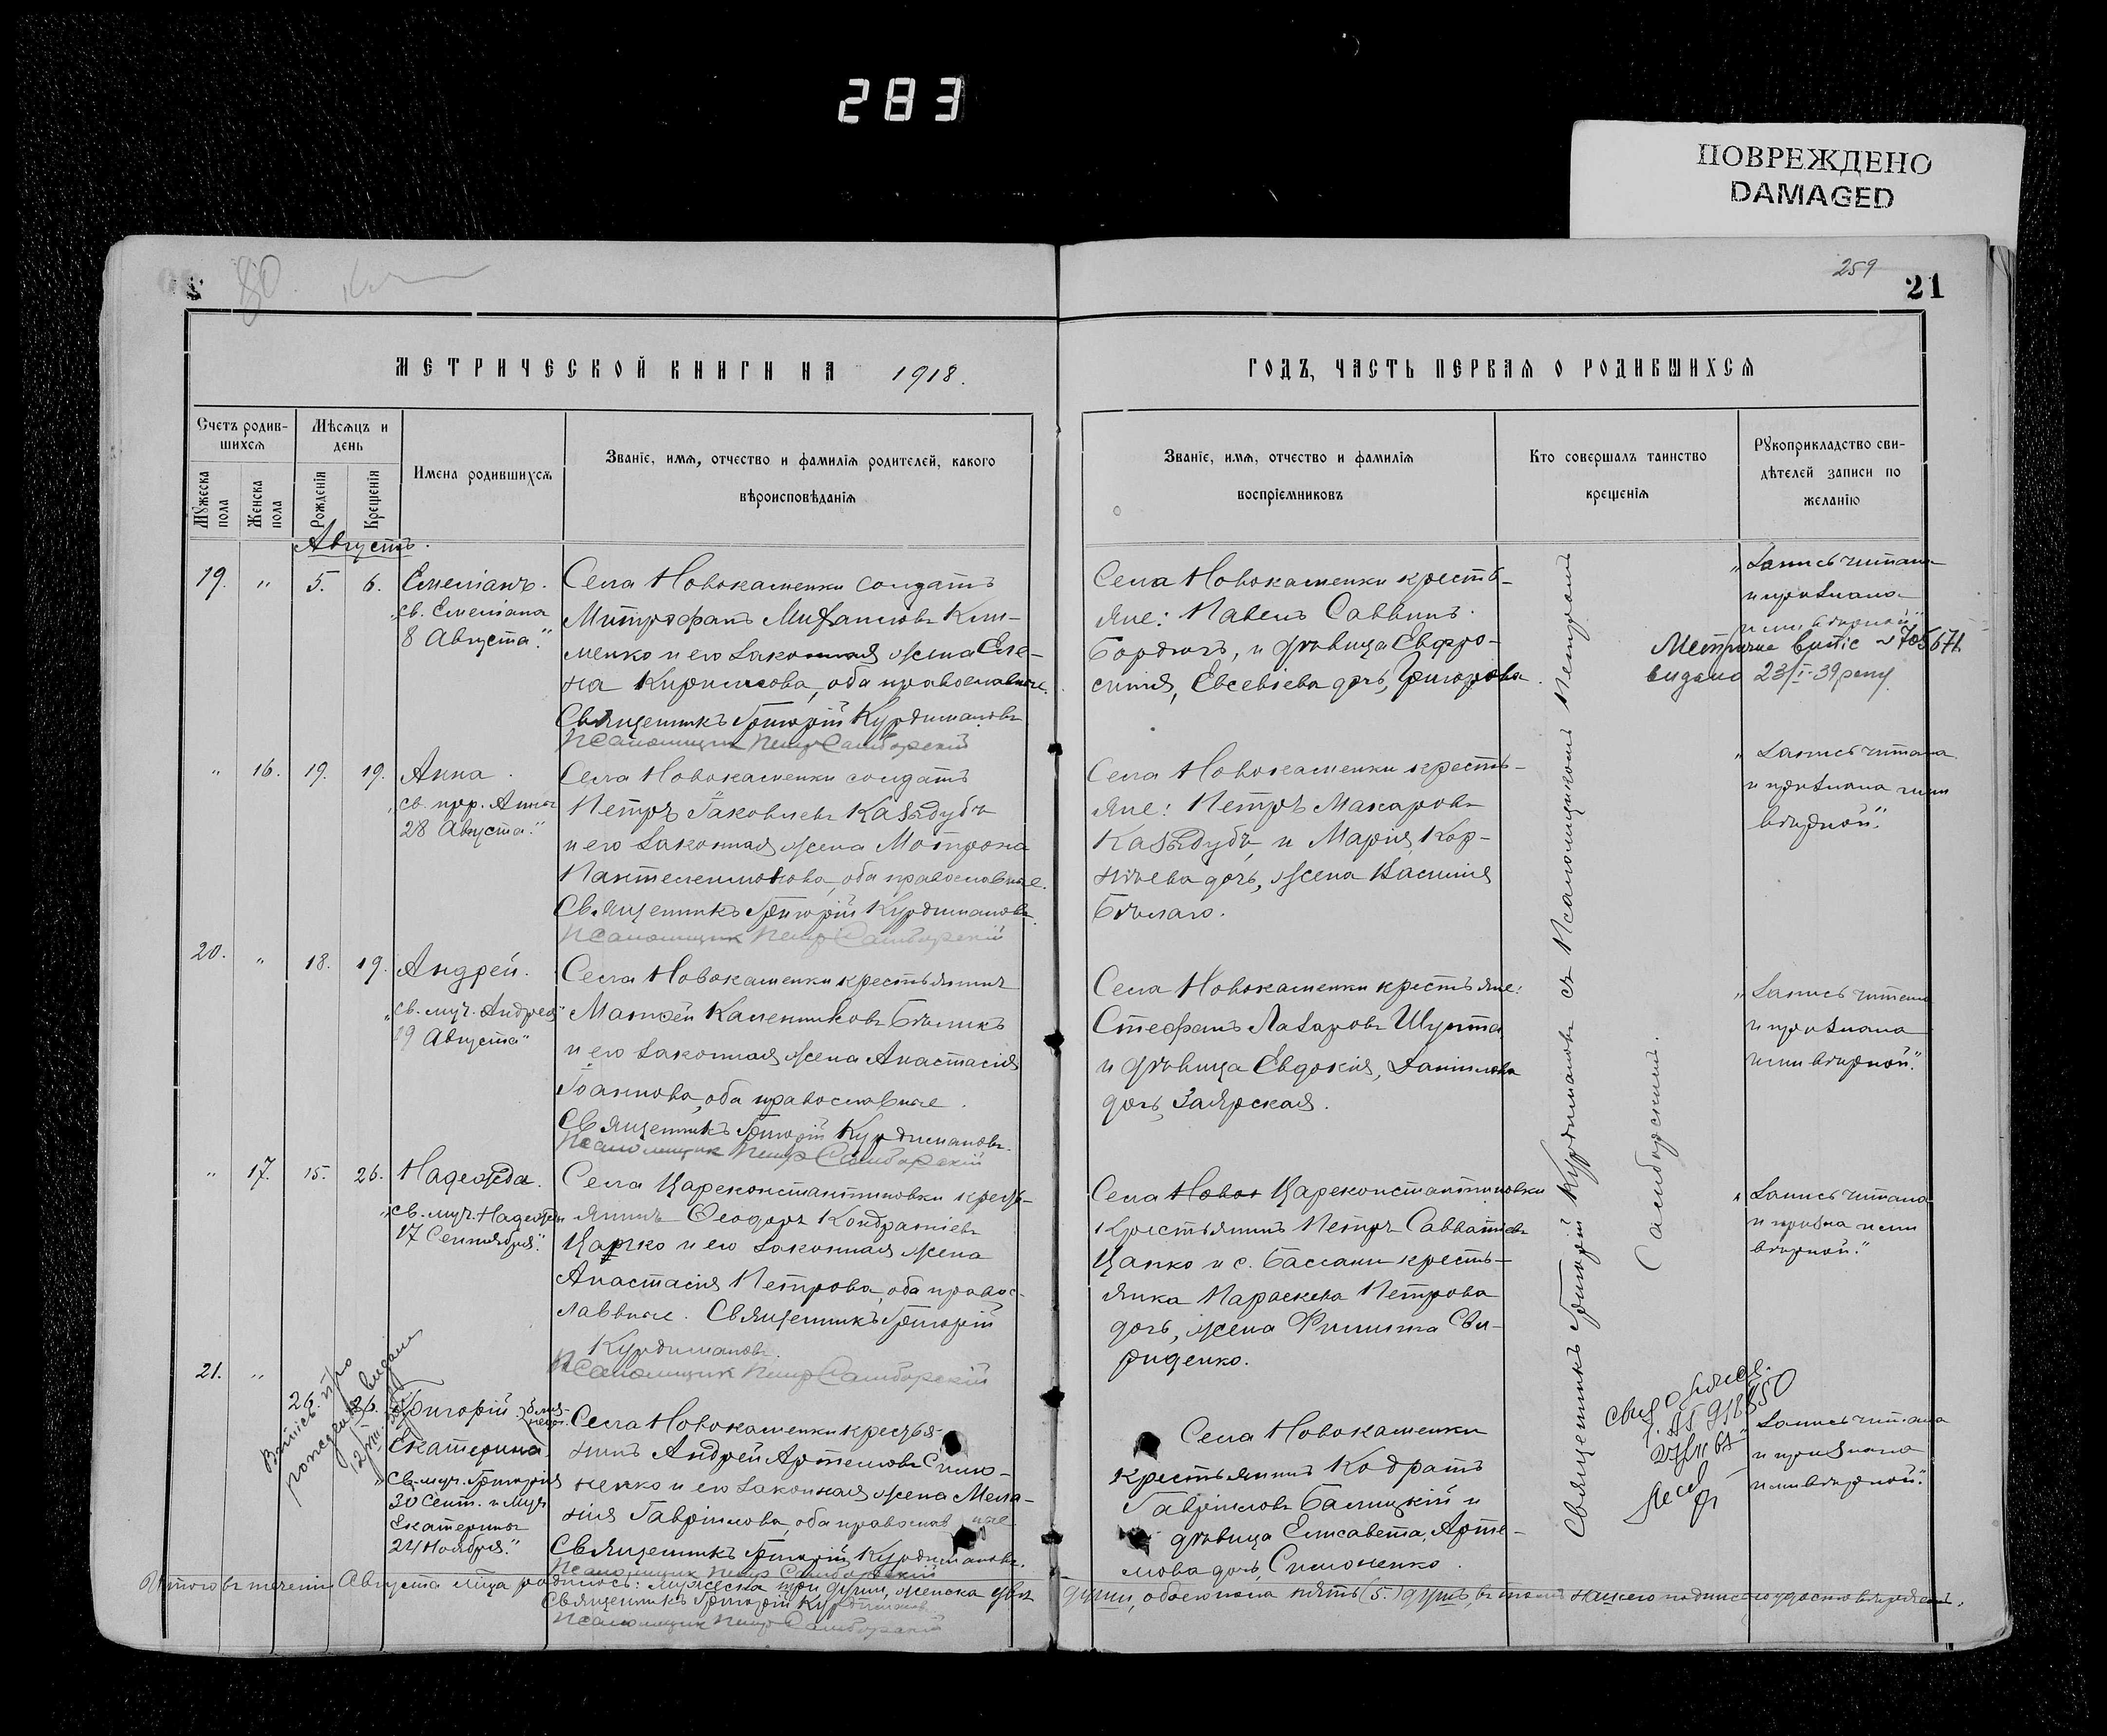 283
ПОВРЕЖДЕНО
DAMAGED
80.
259
21
МЕТРИЧЕСКОЙ КНИГИ НА 1918.
ГОДЪ, ЧАСТЬ ПЕРВАЯ О РОДИВШИХСЯ
Счетъ родив-
шихся
Мѣсяцъ и
день
Мужеска
пола
Женска
пола
Рожденія
Крещенія
Имена родившихся
Званіе, имя, отчество и фамилія родителей, какого
вѣроисповѣданія
Званіе, имя, отчество и фамилія
воспріемниковъ
Кто совершалъ таинство
крещенія
Рукоприкладство сви-
дѣтелей записи по
желанію
Августъ.
19. " 5. 6.
Емеліанъ.
"св. Емеліана
8 Августа".
Села Новокаменки солдатъ
Митрофанъ Михаиловъ Кли-
менко и его законная жена Еле-
на Кирилова, оба православные.
Священникъ Григорій Курдимановъ
Псаломщик Петр Самборскій
Села Новокаменки крестья-
яне: Павелъ Саввинъ
Бордюгъ, и дѣвица Евфро-
синія, Евсевіева дочь, Григорова.
"Запись читана
и признана
Метричне выпіс № 705671
видано 23/I-39 року
" 16. 19. 19.
Анна.
"св. прор. Анны
28 Августа".
Села Новокаменки солдатъ
Петръ Іаковлевъ Казидубъ
и его законная жена Мотрона
Пантелеимонова, оба православные.
Священникъ Григорій Курдимановъ.
Псаломщик Петр Самборскій
Села Новокаменки кресть-
яне: Петръ Макаровъ
Казидубъ, и Марія, Кор-
ніева дочь, жена Василія
Бѣлаго.
" Запись читана
и признана ими
вѣрной".
20. " 18. 19.
Андрей.
"св. муч. Андрея"
19 Августа"
Села Новокаменки крестьянинъ
Матѳей Каленниковъ Бѣликъ
и его законная жена Анастасія
Іоаннова, оба православные.
Священникъ Григорій Курдимановъ.
Псаломщик Петр Самборскій
Села Новокаменки крестьяне:
Стефанъ Лазаровъ Шульга
и дѣвица Евдокія, Даніилова
дочь, Заярская.
"Запись читана
и признана
ими вѣрной".
" 17. 15. 26.
Надежда.
"св. муч. Надежды
17 Сентября".
Села Цареконстантиновки крестья-
янинъ Ѳеодоръ Кондратіевъ
Цапко и его законная жена
Анастасія Петрова, оба правос-
лавные. Священникъ Григорій
Курдимановъ.
Псаломщик Петр Самборскій
Села Новок Цареконстантиновки
крестьянинъ Петръ Савватіевъ
Цапко и с. Бассани кресть-
янка Параскева Петрова
дочь, жена Филиппа Сви-
риденко.
" Запись читана
и призна ими
вѣрной".
21. " 26. 26.
Григорій
Екатерина
"Св. муч. Григорія
30 Сент. и Муч
Екатерины
24 Ноября".
Витпіс про
рождения видани
Села Новокаменки крестья-
нинъ Андрей Артемовъ Симо-
ненко и его законная жена Мела-
нія Гавріилова, оба православные
Священникъ Григорій Курдимановъ.
Псаломщик Петр Самборскій
Села Новокаменки
крестьянинъ Кодратъ
Гавріиловъ Балицкій и
дѣвица Елисавета, Арте-
мова дочь, Симоненко.
Запись читана
и признана
ими вѣрной".
Священникъ Григорій Курдимановъ съ Псаломщикомъ Петромъ
Самборскимъ.
Итого въ теченіи Августа м-ца родилось: мужеска три души, женска двѣ души, обоего пола пять (5.) душъ, въ томъ нашею подписью удостовѣряемъ.
Священникъ Григорій Курдимановъ
Псаломщик Петр Самборскій